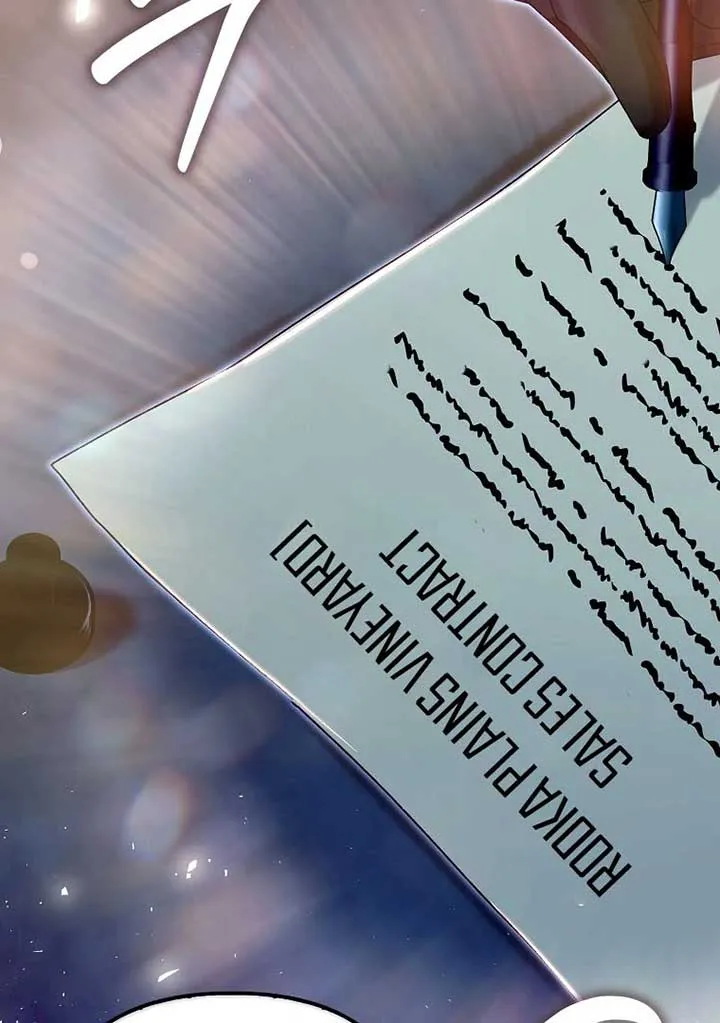 RODKA PLAINS VINEYARD]
SALES CONTRACT